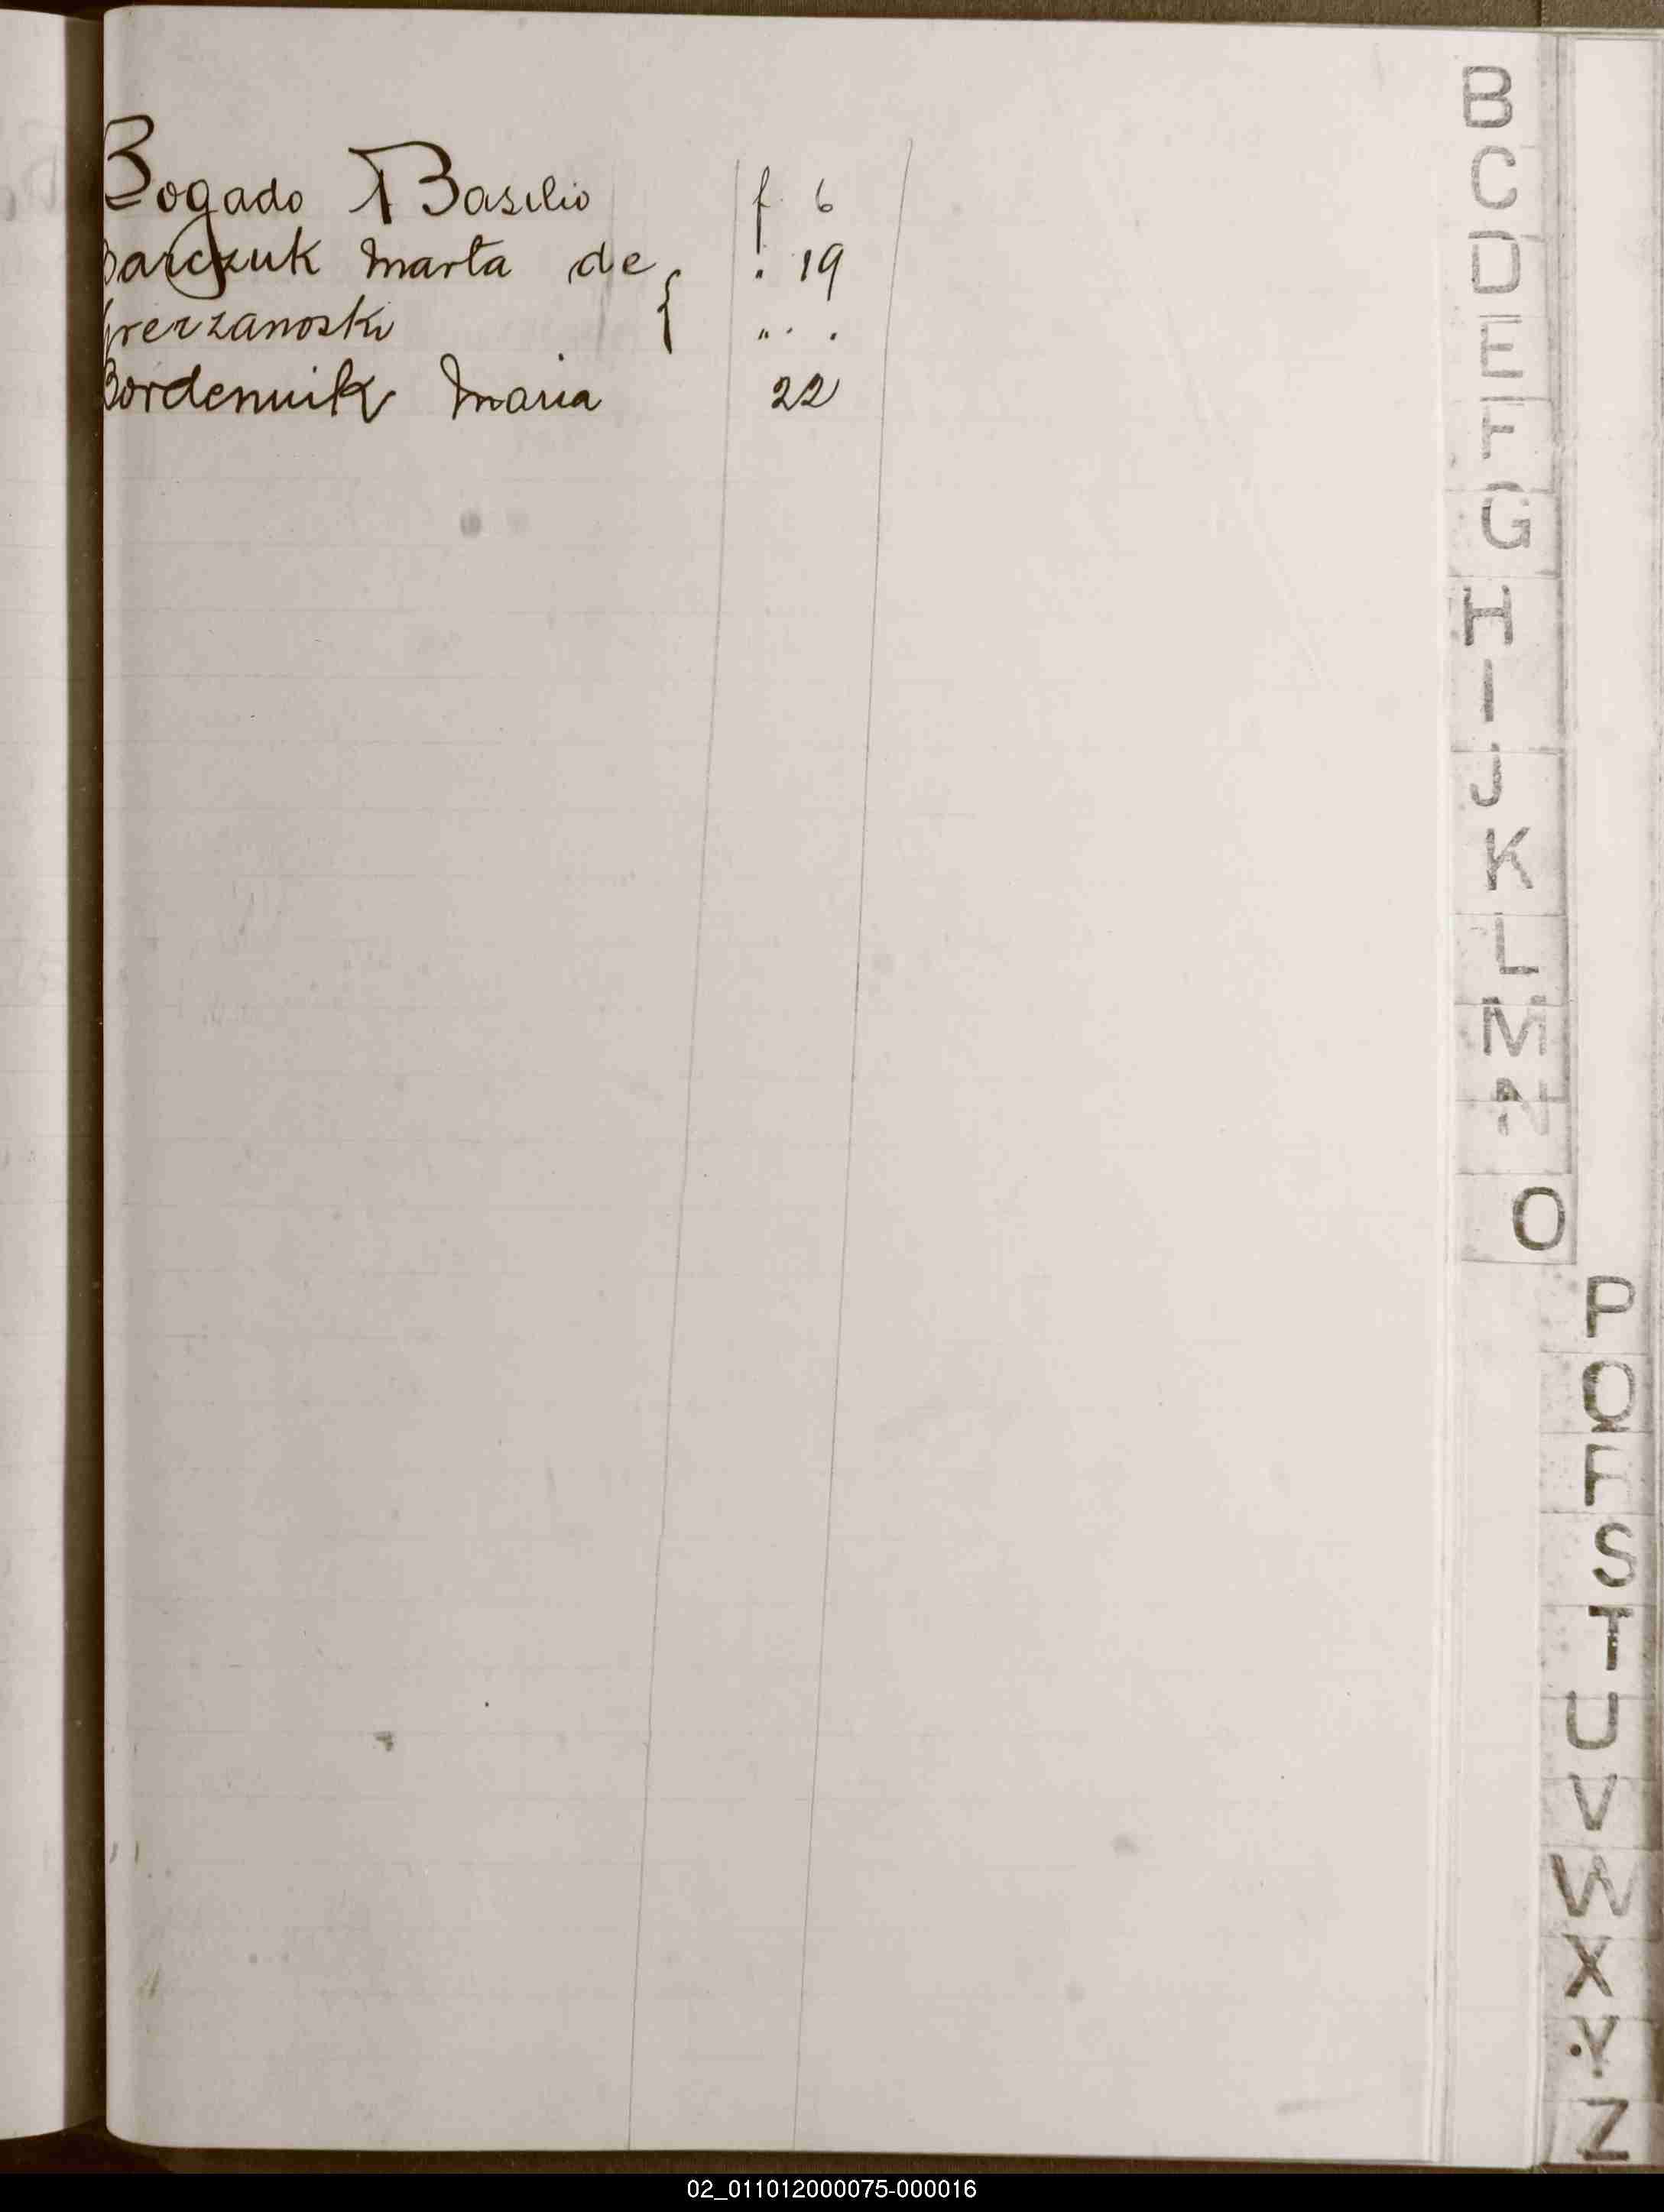 Bogado Basilio f. 6
Barczuk Marta de { . 19
Grerzanoski " . .
Bordenuik Maria 22
B
C
D
E
F
G
H
I
J
K
L
M
N
O
P
Q
R
S
T
U
V
W
X
Y
Z
02_011012000075-000016